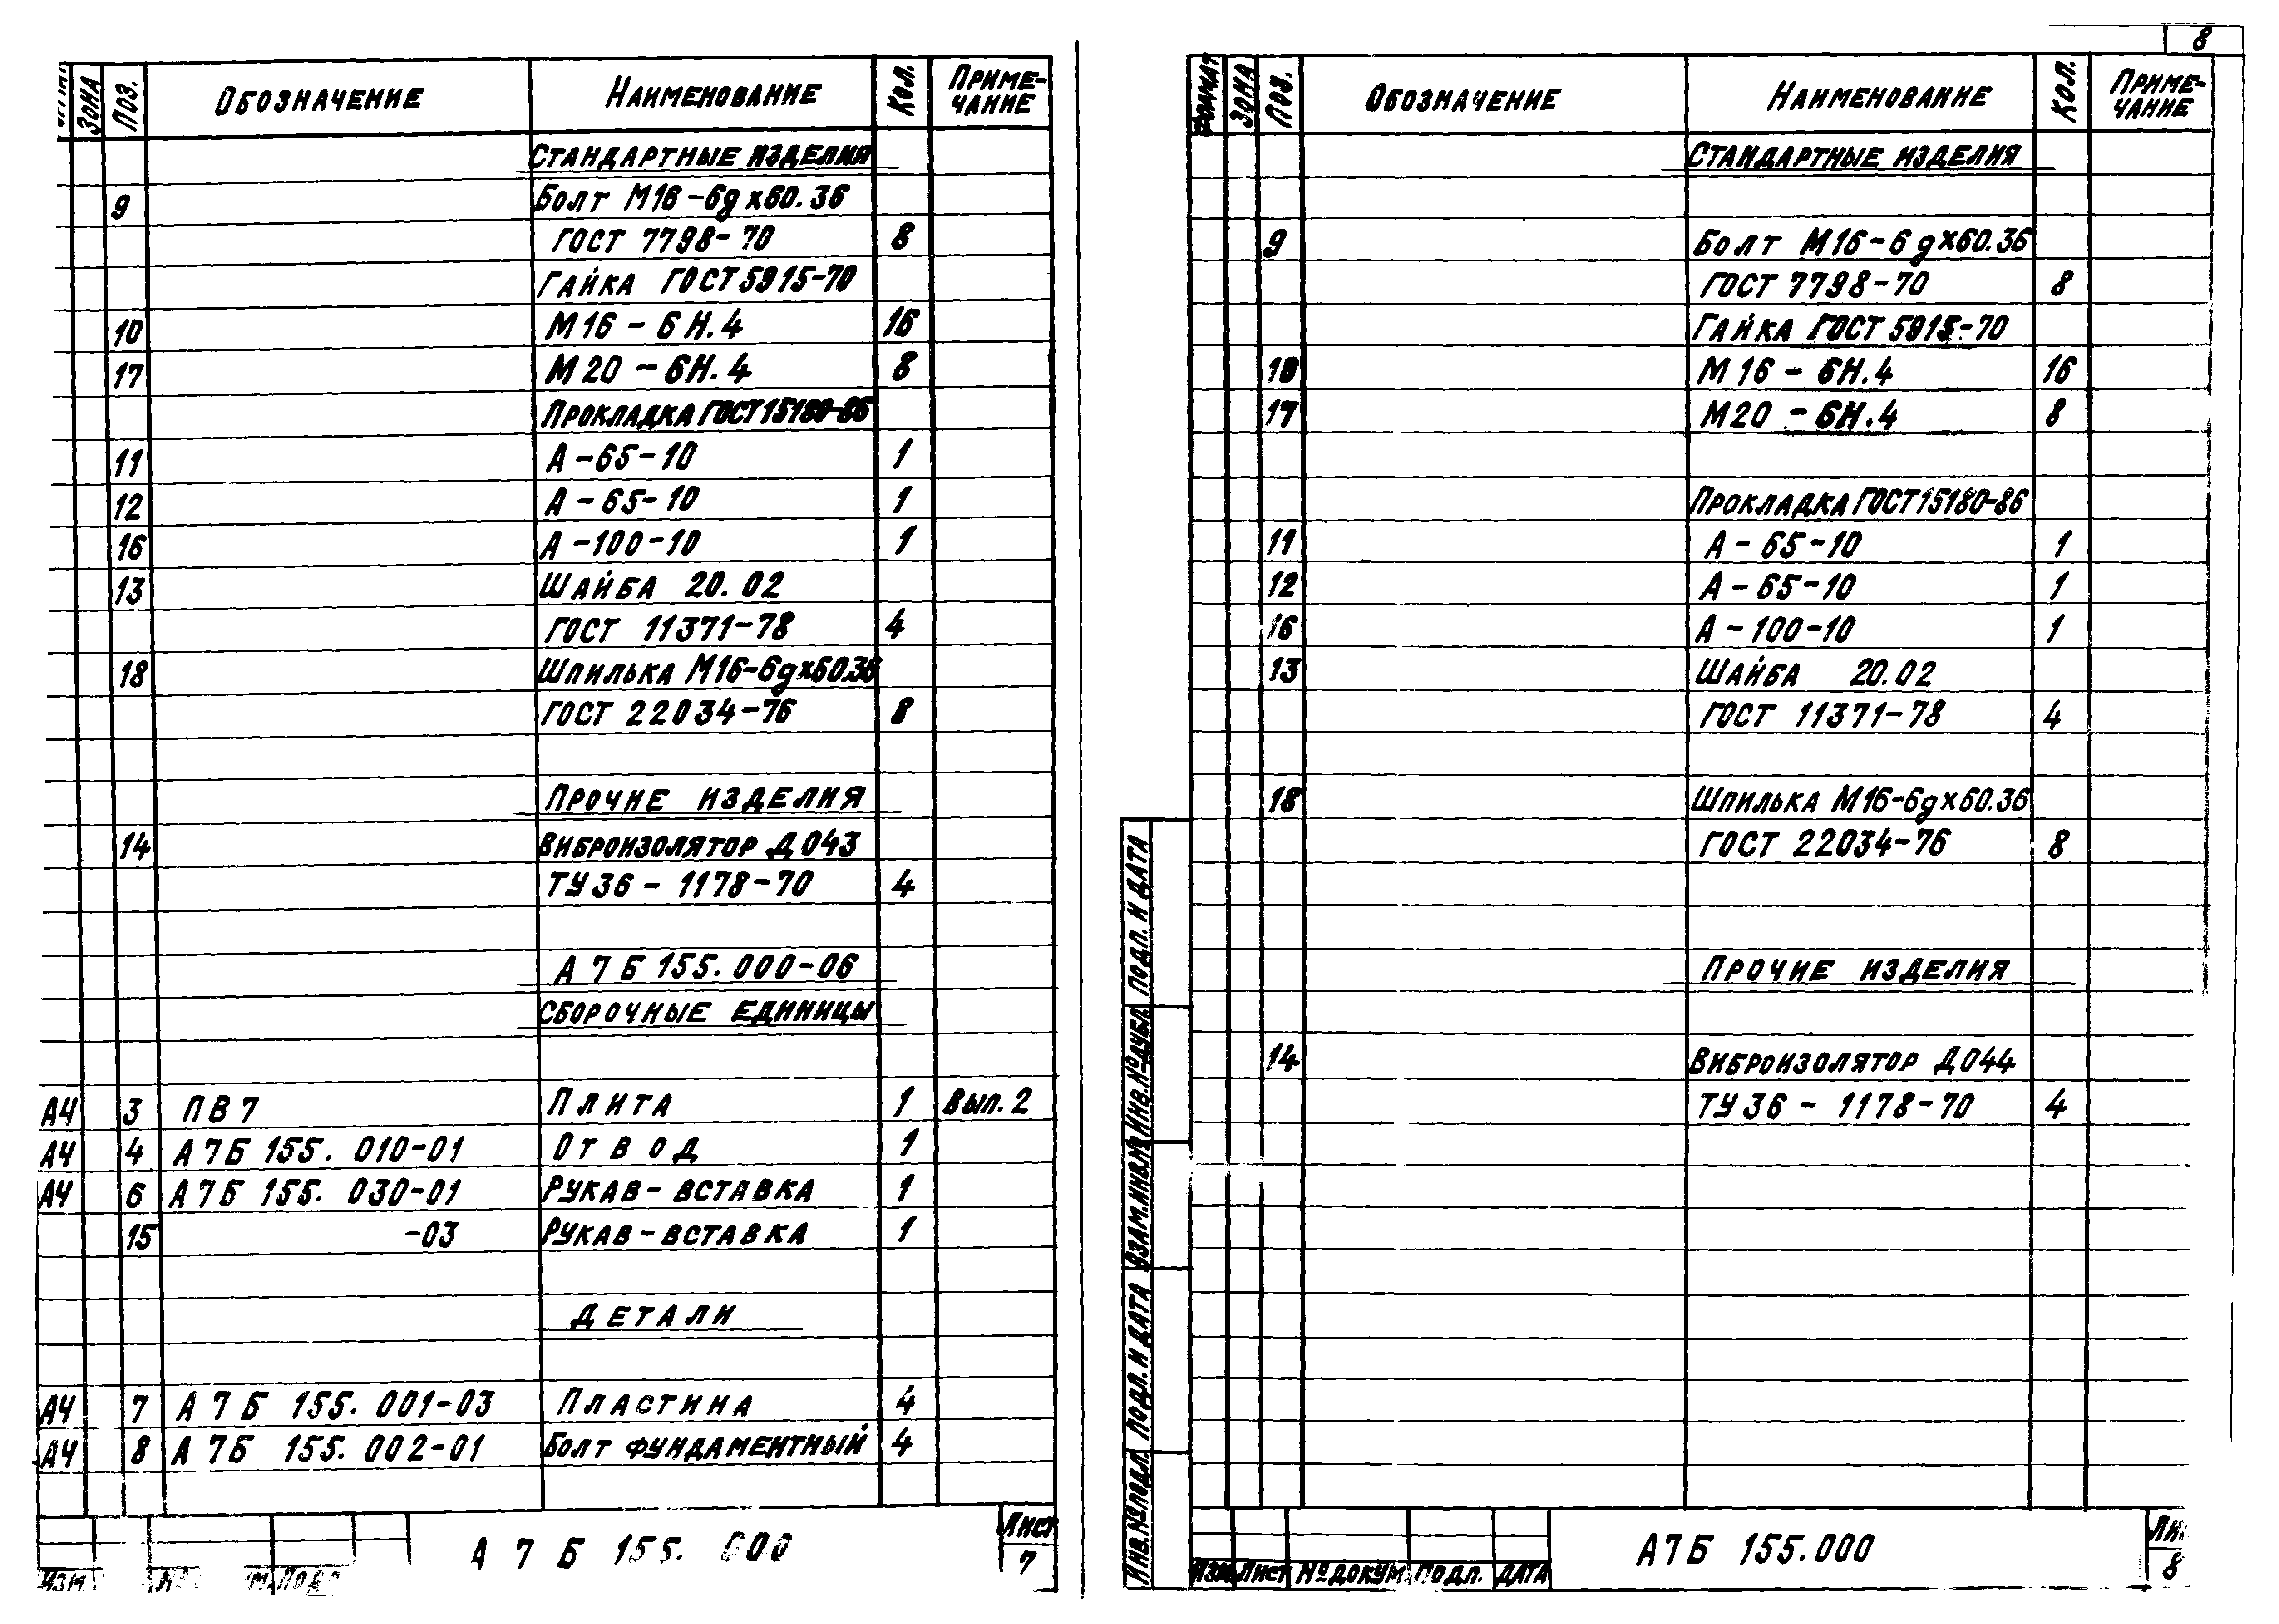 ЗОНА ПОЗ. ОБОЗНАЧЕНИЕ НАИМЕНОВАНИЕ КОЛ. ПРИМЕ-
ЧАНИЕ
СТАНДАРТНЫЕ ИЗДЕЛИЯ
9 БОЛТ М16-6gх60.36
ГОСТ 7798-70 8
ГАЙКА ГОСТ 5915-70
10 М16-6Н.4 16
17 М20-6Н.4 8
ПРОКЛАДКА ГОСТ 15180-86
11 А-65-10 1
12 А-65-10 1
16 А-100-10 1
13 ШАЙБА 20.02
ГОСТ 11371-78 4
18 ШПИЛЬКА М16-6gх60.36
ГОСТ 22034-76 8
ПРОЧИЕ ИЗДЕЛИЯ
14 ВИБРОИЗОЛЯТОР Д043
ТУ 36-1178-70 4
А7Б 155.000-06
СБОРОЧНЫЕ ЕДИНИЦЫ
А4 3 ПВ7 ПЛИТА 1 ВЫП. 2
А4 4 А7Б 155.010-01 ОТВОД 1
А4 6 А7Б 155.030-01 РУКАВ-ВСТАВКА 1
15 -03 РУКАВ-ВСТАВКА 1
ДЕТАЛИ
А4 7 А7Б 155.001-03 ПЛАСТИНА 4
А4 8 А7Б 155.002-01 БОЛТ ФУНДАМЕНТНЫЙ 4
ИЗМ.
А7Б 155.000
ЛИСТ
7
8
ФОРМАТ ЗОНА ПОЗ. ОБОЗНАЧЕНИЕ НАИМЕНОВАНИЕ КОЛ. ПРИМЕ-
ЧАНИЕ
СТАНДАРТНЫЕ ИЗДЕЛИЯ
9 БОЛТ М16-6gх60.36
ГОСТ 7798-70 8
ГАЙКА ГОСТ 5915-70
10 М16-6Н.4 16
17 М20-6Н.4 8
ПРОКЛАДКА ГОСТ 15180-86
11 А-65-10 1
12 А-65-10 1
16 А-100-10 1
13 ШАЙБА 20.02
ГОСТ 11371-78 4
18 ШПИЛЬКА М16-6gх60.36
ГОСТ 22034-76 8
ПРОЧИЕ ИЗДЕЛИЯ
14 ВИБРОИЗОЛЯТОР Д044
ТУ 36-1178-70 4
ИНВ.№ПОДЛ. ПОДП. И ДАТА ВЗАМ.ИНВ.№ ИНВ.№ДУБЛ. ПОДП. И ДАТА
ИЗМ ЛИСТ №ДОКУМ. ПОДП. ДАТА
А7Б 155.000
8